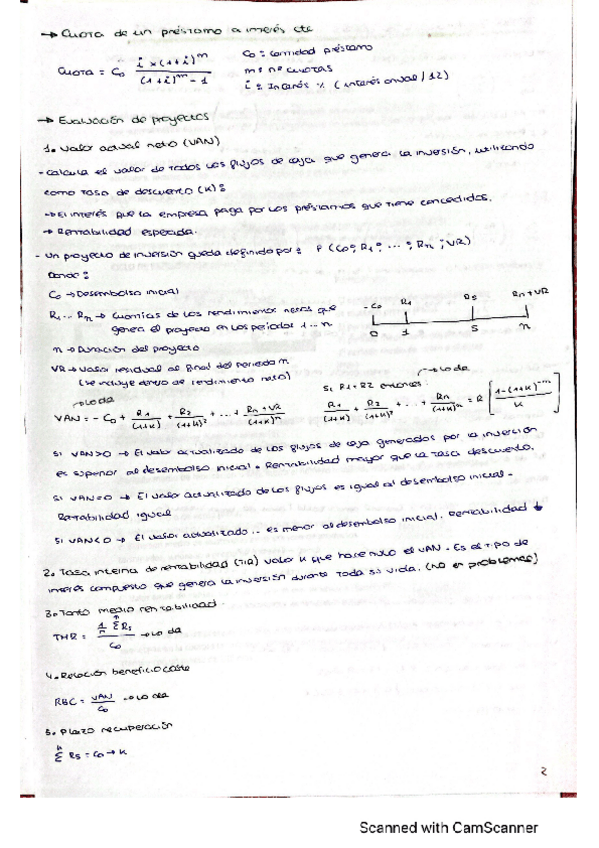 → Cuota de un préstamo a interés cte
Cuota = C₀ i × (1+i)^m / (1+i)^m - 1
C₀ = cantidad préstamo
m = nº cuotas
i = Interés % (interés anual / 12)
→ Evaluación de proyectos
1. Valor actual neto (VAN)
- Calcula el valor de todos los flujos de caja que genera la inversión, utilizando
como tasa de descuento (K):
→ El interés que la empresa paga por los préstamos que tiene concedidos.
→ Rentabilidad esperada.
- Un proyecto de inversión queda definido por: P (C₀; R₁; ...; Rn; VR)
Donde:
C₀ → Desembolso inicial
R₁... Rn → Cuantías de los rendimientos netos que
genera el proyecto en los periodos 1...n
-C₀ R₁ R₅ Rn+VR
0 1 5 n
n → Duración del proyecto
VR → Valor residual al final del periodo n.
(se incluye dentro de rendimiento neto)
→ lo da
VAN = - C₀ + R₁/(1+K) + R₂/(1+K)² + ... + Rn+VR/(1+K)^n
Si R₁=R₂ entonces: → lo da
R₁/(1+K) + R₂/(1+K)² + ... + Rn/(1+K)^n = R [1-(1+K)^-n / K]
Si VAN>0 → El valor actualizado de los flujos de caja generados por la inversión
es superior al desembolso inicial. Rentabilidad mayor que la tasa descuento.
Si VAN=0 → El valor actualizado de los flujos es igual al desembolso inicial.
Rentabilidad igual
Si VAN<0 → El valor actualizado.. es menor al desembolso inicial. Rentabilidad ↓
2. Tasa interna de rentabilidad (TIR) valor K que hace nulo el VAN. Es el tipo de
interés compuesto que genera la inversión durante toda su vida. (No en problemas)
3. Tanto medio rentabilidad
TMR = 1/n Σ Rs / C₀ → lo da
4. Relación beneficio coste
RBC = VAN/C₀ → lo da
5. Plazo recuperación
Σ Rs = C₀ → K
2
Scanned with CamScanner